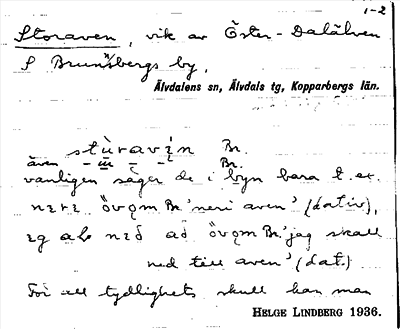 1-2
Storaven, vik av Öster-Dalälven
S Brunnsbergs by,
Älvdalens sn, Älvdals tg, Kopparbergs län.
stùravin Br.
även Br.
vanligen säger de i byn bara t.ex.
Br. 'neri aven' (dativ),
Br. 'jag skall
ned till aven' (dat.)
För all tydlighets skull kan man
HELGE LINDBERG 1936.